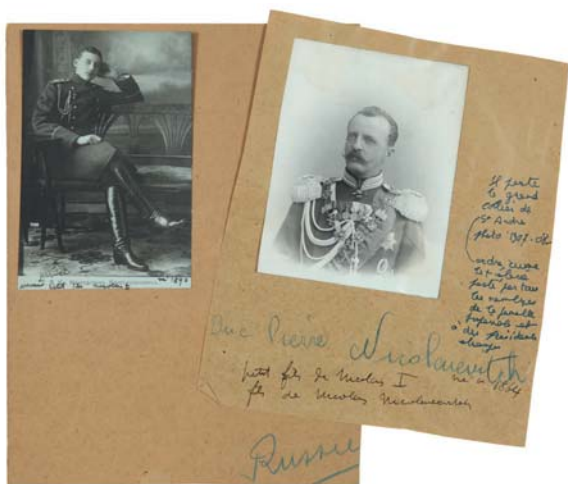 né 1890
Il porte
le grand
collier de
St André
photo 1907
ordre, russe
porté par tous
les membres
de la famille
Impériale et
à des Présidents
étrangers
Duc Pierre Nicolaievitch
petit fils de Nicolas I né en 1864
fils de Nicolas Nicolaievitch
Russie